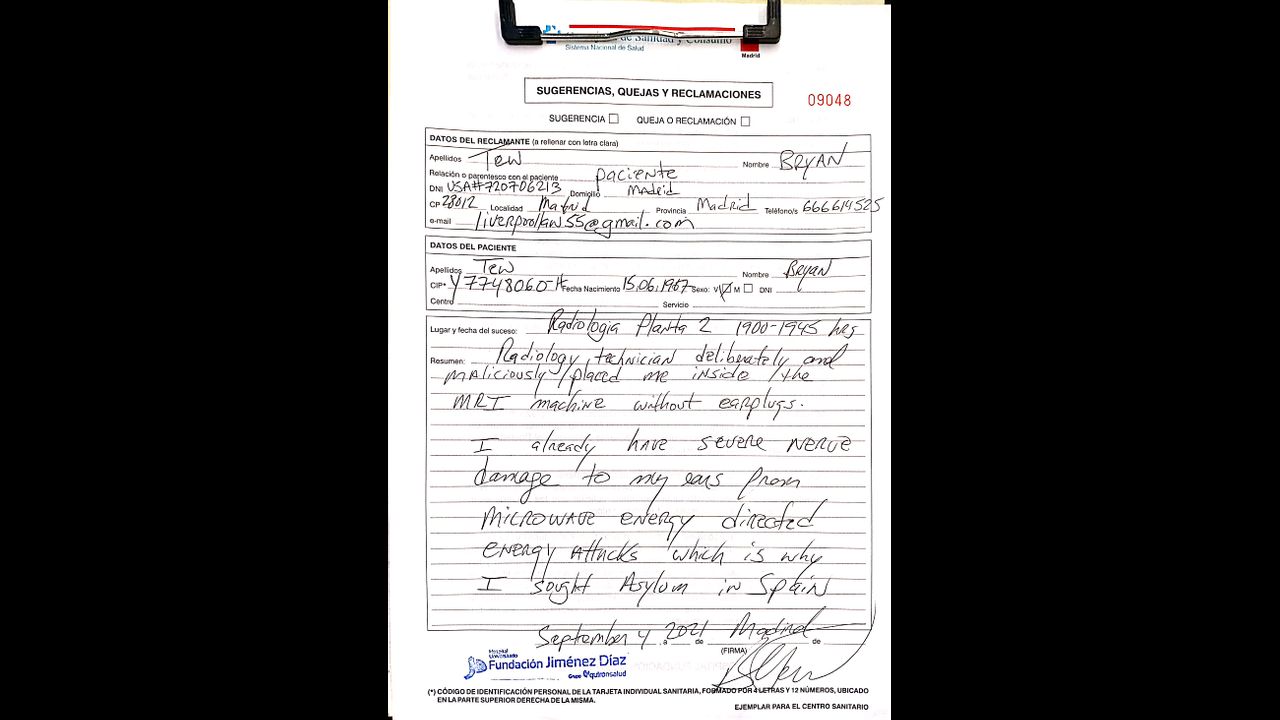 de Sanidad y Consumo
Sistema Nacional de Salud
Madrid
SUGERENCIAS, QUEJAS Y RECLAMACIONES
09048
SUGERENCIA QUEJA O RECLAMACIÓN
DATOS DEL RECLAMANTE (a rellenar con letra clara)
Apellidos Tew Nombre BRYAN
Relación o parentesco con el paciente paciente
DNI USA#720706213 Domicilio Madrid
CP 28012 Localidad Madrid Provincia Madrid Teléfono/s 666614525
e-mail liverpoollaw55@gmail.com
DATOS DEL PACIENTE
Apellidos Tew Nombre Bryan
CIP* Y7748060-H Fecha Nacimiento 15.06.1967 Sexo: V M DNI
Centro Servicio
Lugar y fecha del suceso: Radiologia Planta 2 1900-1945 hrs
Resumen: Radiology technician deliberately and
maliciously placed me inside the
MRI machine without earplugs.
I already have severe nerve
damage to my ears from
microwave energy directed
energy attacks which is why
I sought Asylum in Spain
September 4 a 2021 de Madrid de
(FIRMA)
Hospital
Universitario
Fundación Jiménez Díaz
Grupo quironsalud
(*) CÓDIGO DE IDENTIFICACIÓN PERSONAL DE LA TARJETA INDIVIDUAL SANITARIA, FORMADO POR 4 LETRAS Y 12 NÚMEROS, UBICADO
EN LA PARTE SUPERIOR DERECHA DE LA MISMA.
EJEMPLAR PARA EL CENTRO SANITARIO